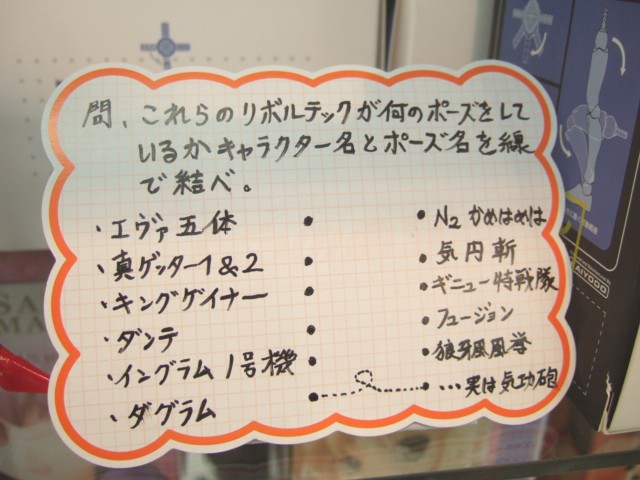 問、これらのリボルテックが何のポーズをして
いるかキャラクター名とポーズ名を線
で結べ。
・エヴァ五体
・真ゲッター1&2
・キングゲイナー
・ダンテ
・イングラム1号機
・ダグラム
・N2かめはめは
・気円斬
・ギニュー特戦隊
・フュージョン
・狼牙風風拳
・…実は気功砲
KAIYODO